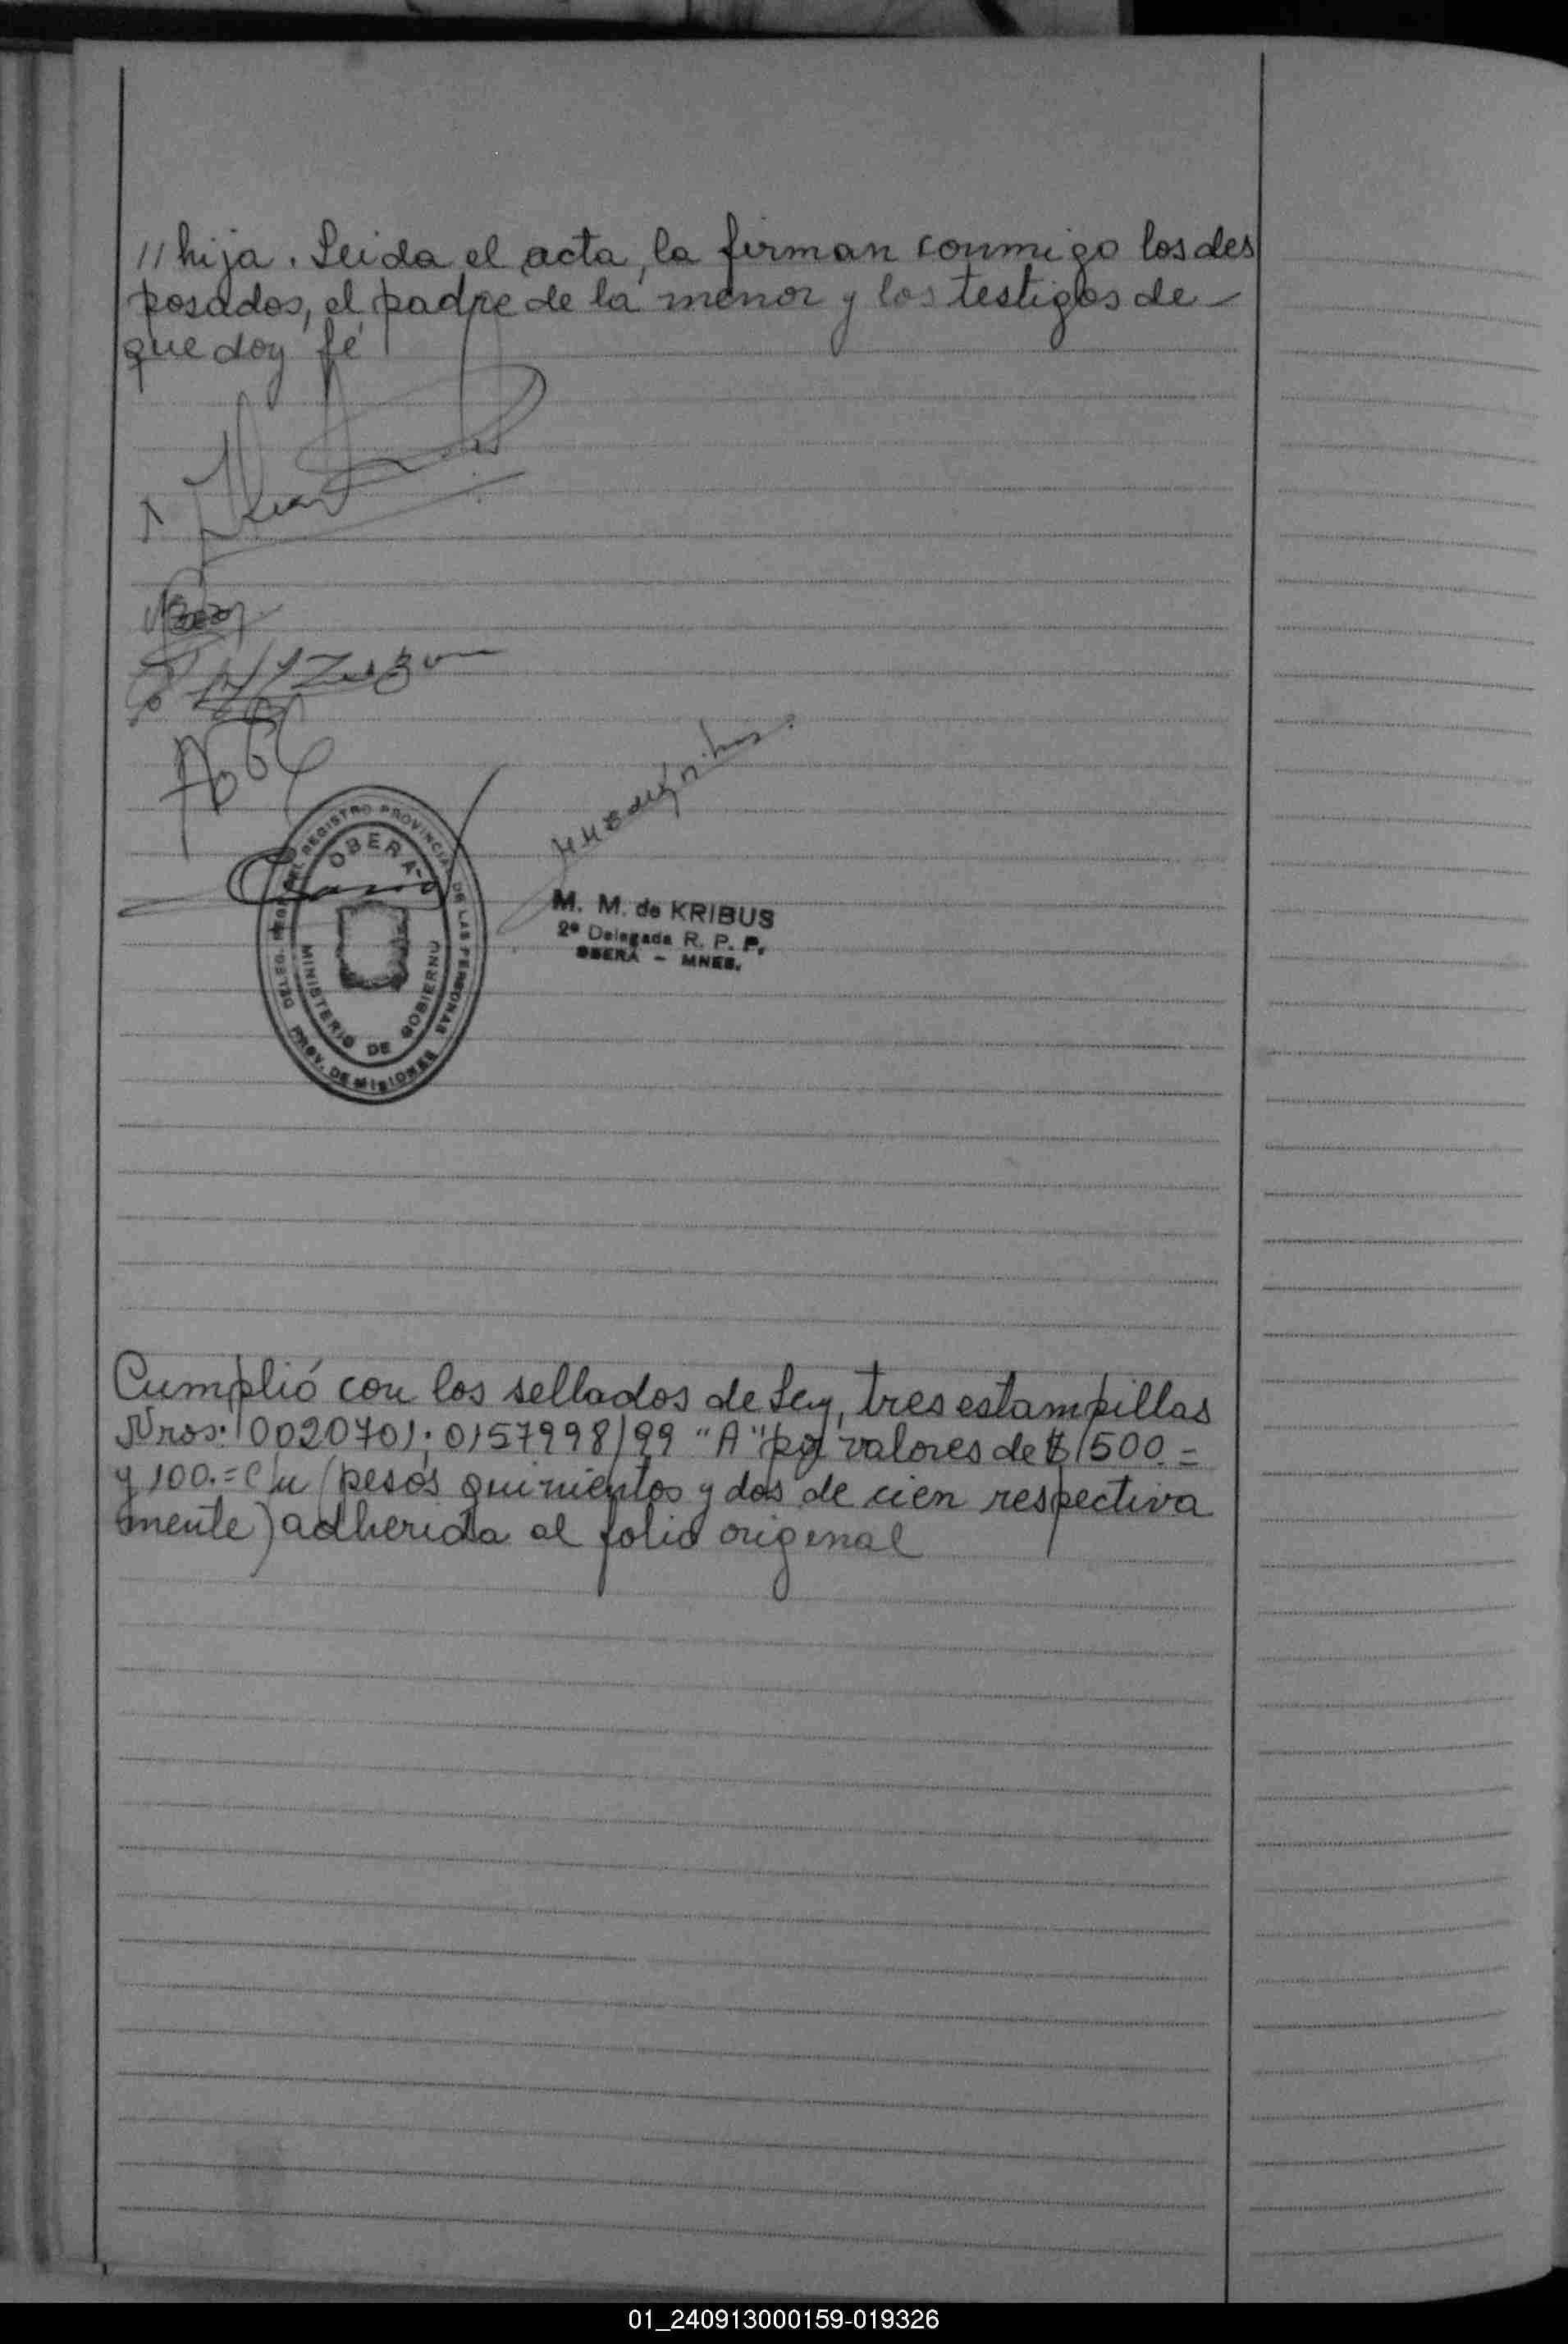 // hija. Leida el acta, la firman conmigo los des
posados, el padre de la menor y los testigos de -
que doy fé
DELEG. REG. DEL REGISTRO PROVINCIAL DE LAS PERSONAS
OBERA-
MINISTERIO DE GOBIERNO
PROV. DE MISIONES
M. M. de KRIBUS
2ª Delegada R. P. P.
OBERÁ - MNES.
Cumplió con los sellados de Ley, tres estampillas
Nros. 0020701; 0157998/99 "A" por valores de $ 500.=
y 100.= c/u (pesos quinientos y dos de cien respectiva
mente) adherida al folio origenal
01_240913000159-019326